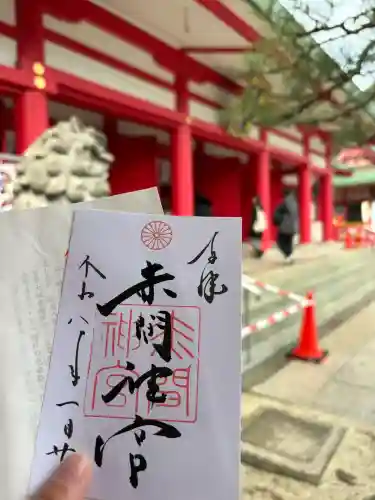 奉拝
赤間神宮
赤間
神宮
令和八年一月廿